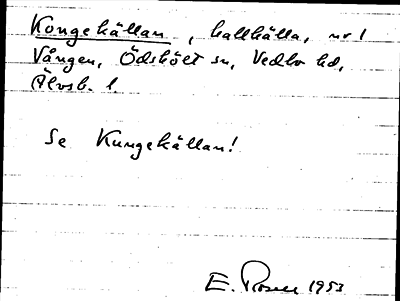 Kongekällan, kallkälla, nr 1
Vången, Ödskölt sn, Vedbo hd,
Älvsb. l.
Se Kungekällan!
E. Rosell 1953